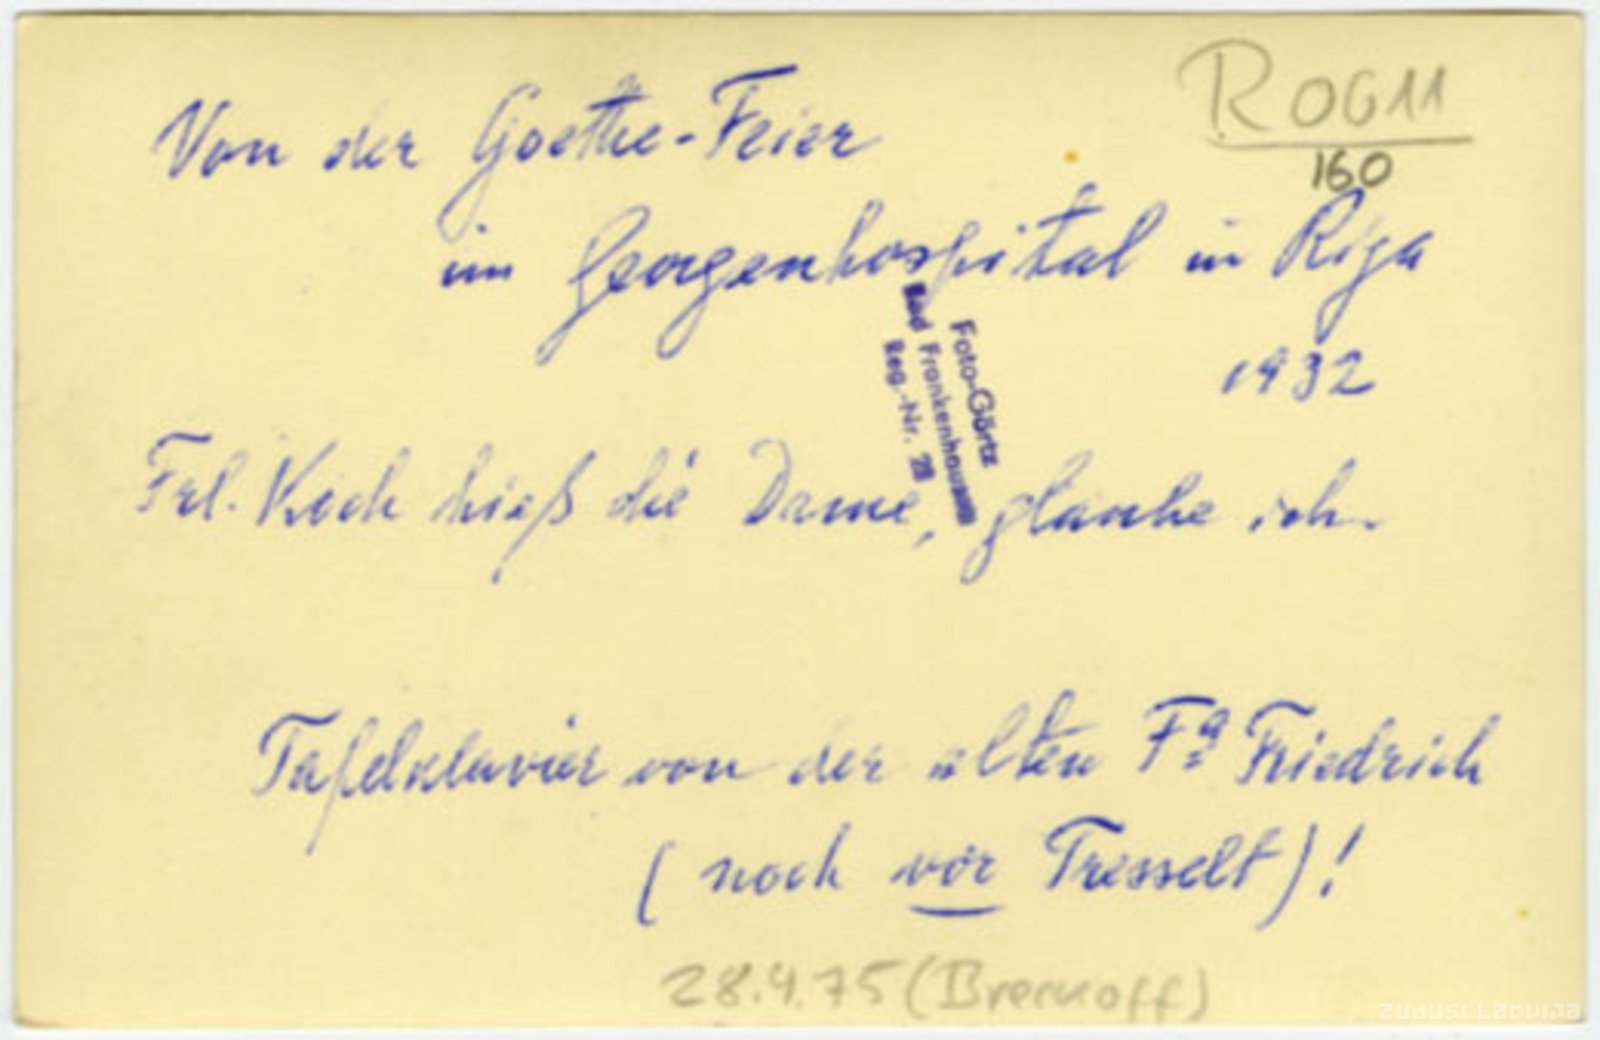 R 0611
160
Von der Goethe-Feier
im Georgenhospital in Riga
1932
Foto-Görtz
Bad Frankenhausen
Reg.-Nr. 28
Frl. Koch hieß die Dame, glaube ich.
Tafelklavier von der alten Fa Friedrich
(noch vor Tresselt)!
28.4.75 (Breckoff)
ZUDUSI LATVIJA